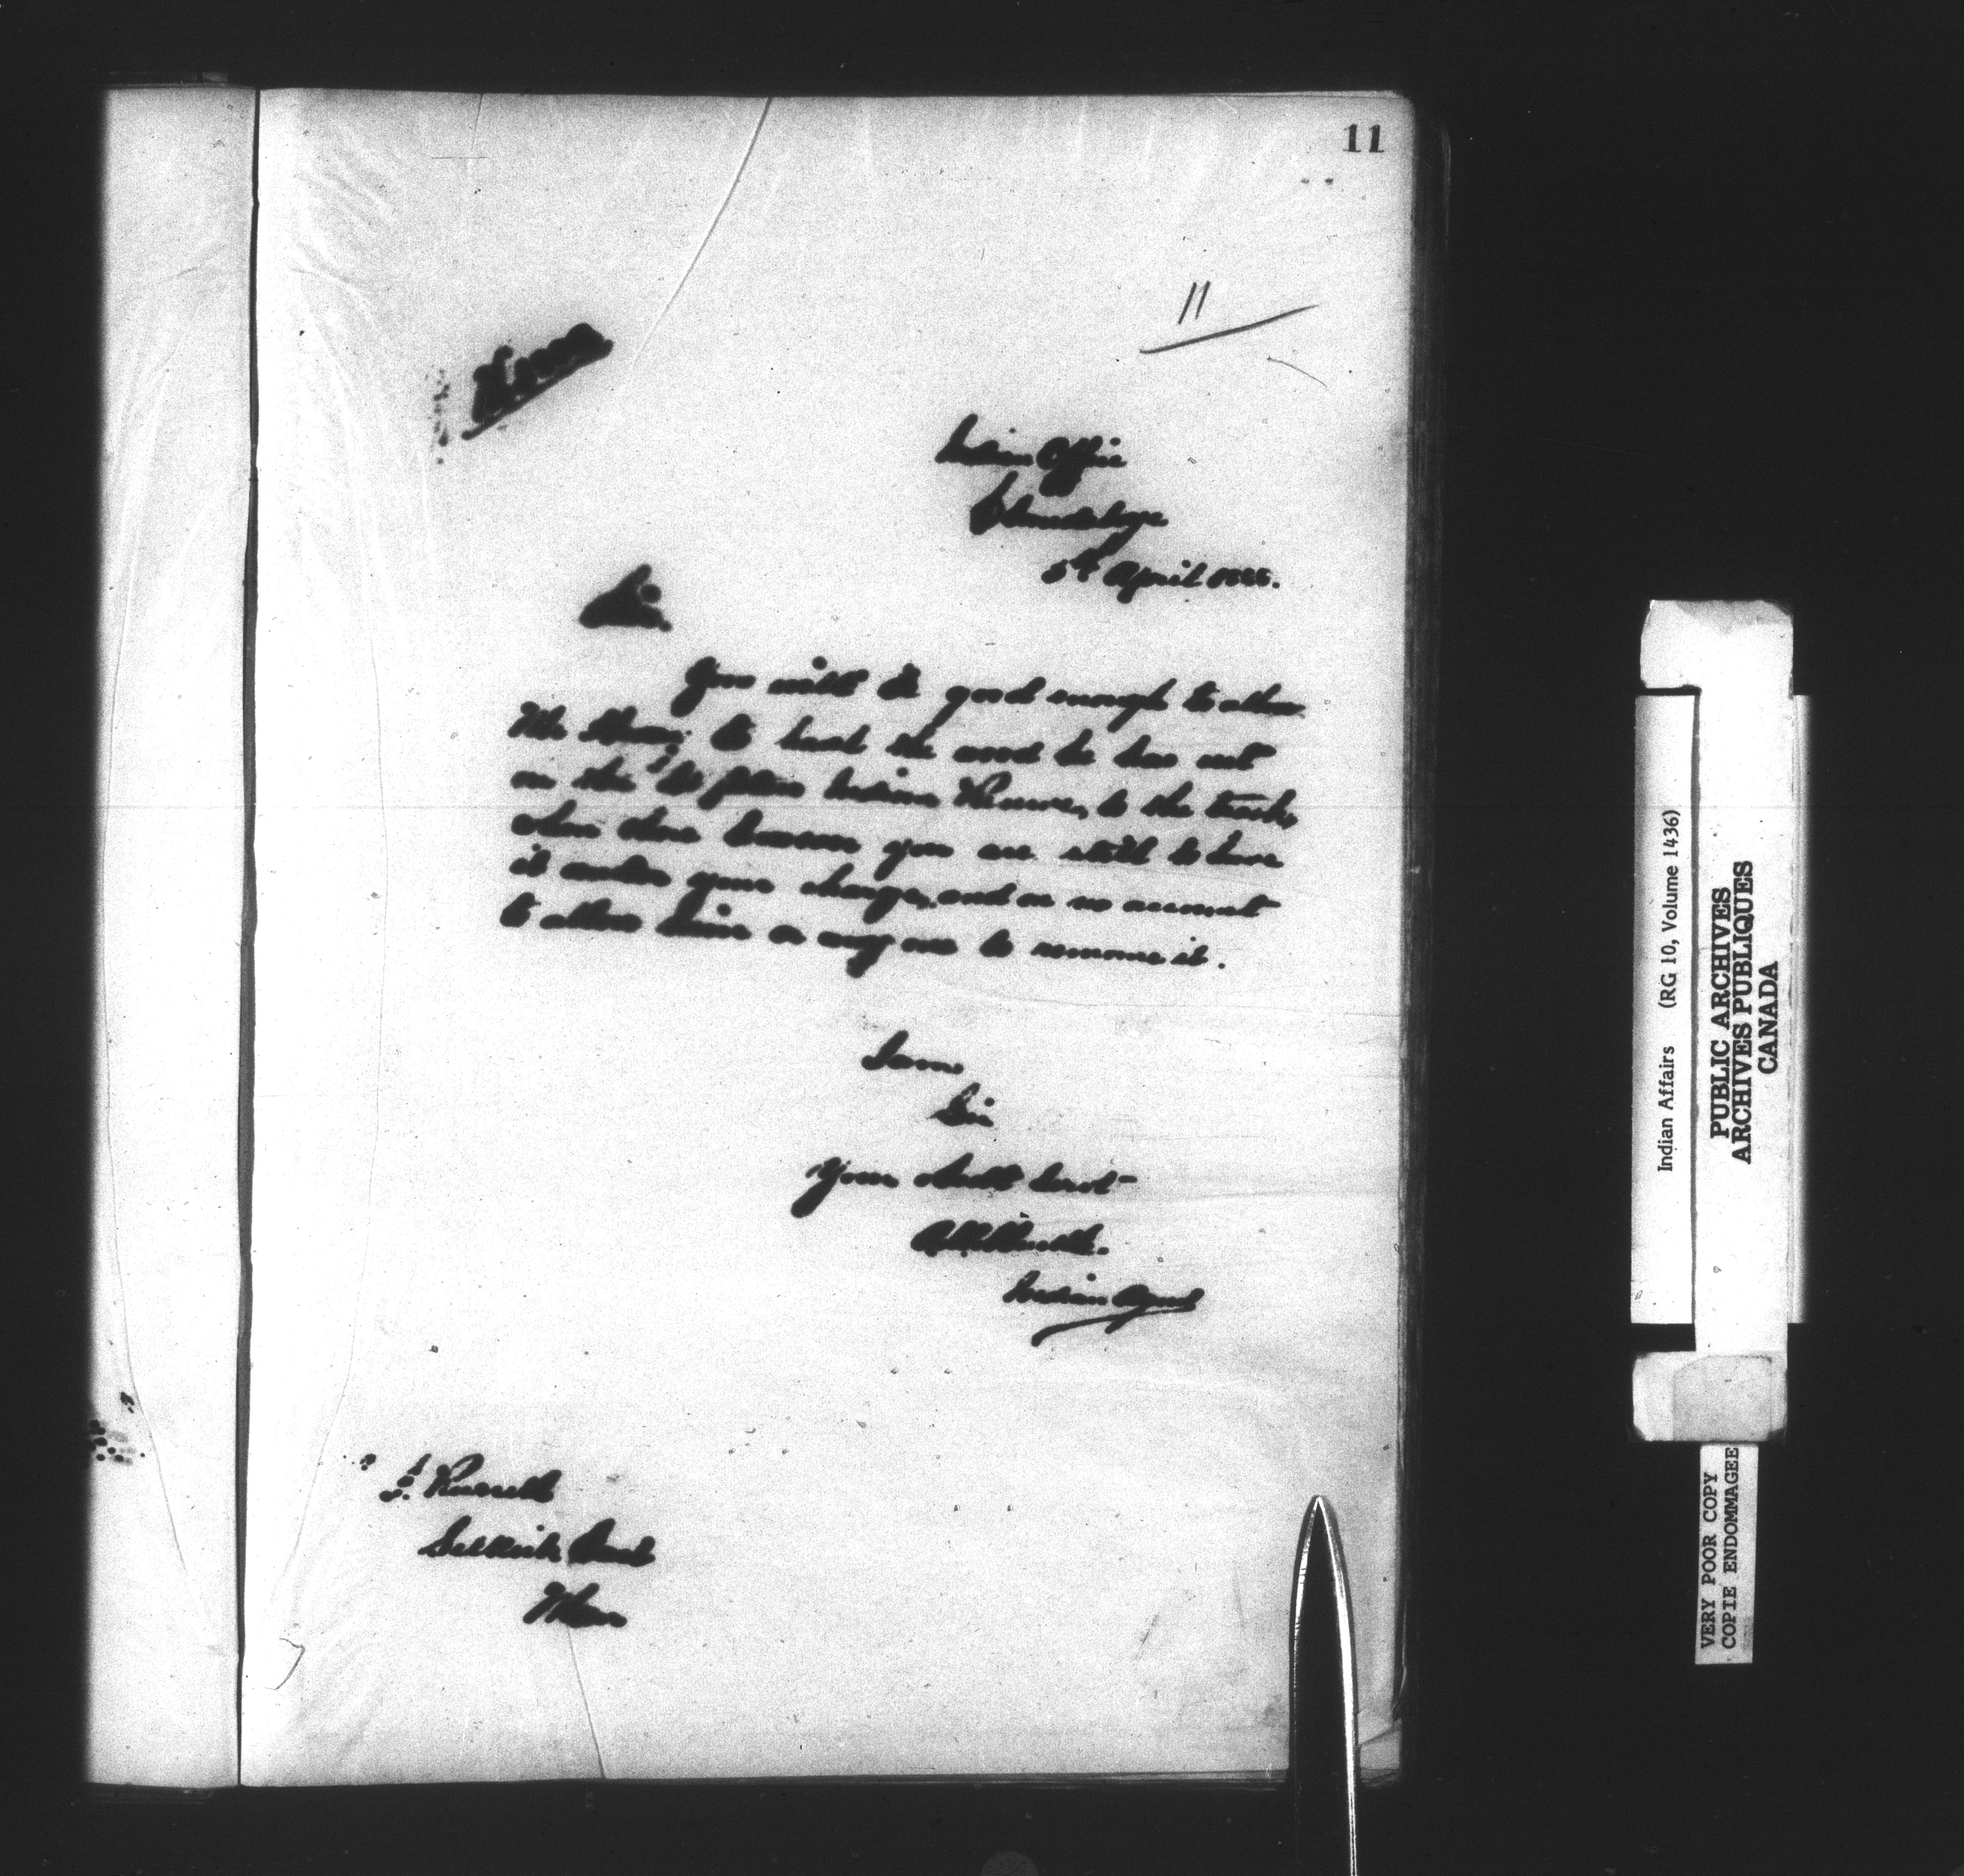 11
11
Indian Office
5th April 1886.
Sir.
You will be good enough to allow
Mr to haul the wood he has cut
on the St Peters Indian Reserve, to the track,
when there however you are still to have
it under your charge, and on no account
to allow him or any one to remove it.
I am
Sir
Your obedt servt
Indian Agent
Russell
Selkirk East
Man
Indian Affairs (RG 10, Volume 1436)
PUBLIC ARCHIVES
ARCHIVES PUBLIQUES
CANADA
VERY POOR COPY
COPIE ENDOMMAGEE